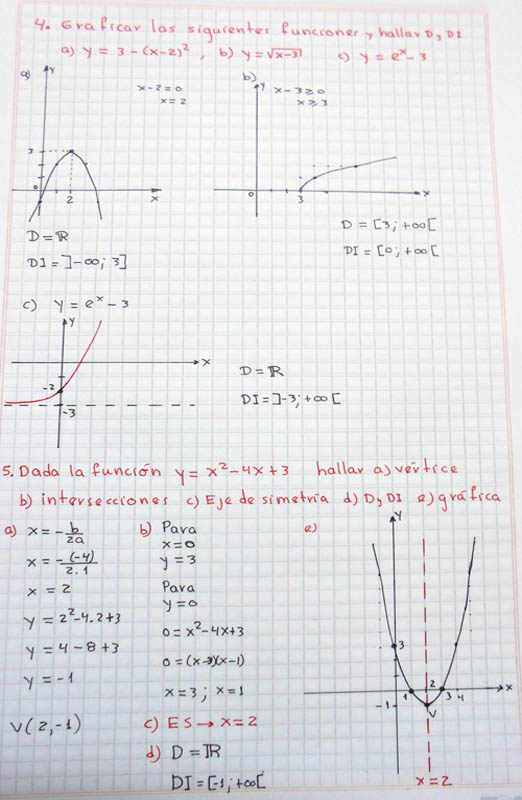 4. Graficar las siguientes funciones y hallar D, DI
a) y = 3 - (x-2)² , b) y = √x-3 c) y = eˣ - 3
a)
y
x-2=0
x=2
3
0
2
x
D = ℝ
DI = ]-∞; 3]
b)
y
x-3≥0
x≥3
0
3
x
D = [3; +∞[
DI = [0; +∞[
c) y = eˣ - 3
y
x
-2
-3
D = ℝ
DI = ]-3; +∞[
5. Dada la función y = x²-4x+3 hallar a) vértice
b) intersecciones c) Eje de simetría d) D, DI e) gráfica
a) x = - b/2a
x = - (-4)/2.1
x = 2
y = 2²-4.2+3
y = 4-8+3
y = -1
V(2,-1)
b) Para
x=0
y=3
Para
y=0
0 = x²-4x+3
0 = (x-3)(x-1)
x=3 ; x=1
c) ES → x=2
d) D = ℝ
DI = [-1; +∞[
e)
y
3
1
2
3
4
x
-1
V
x=2